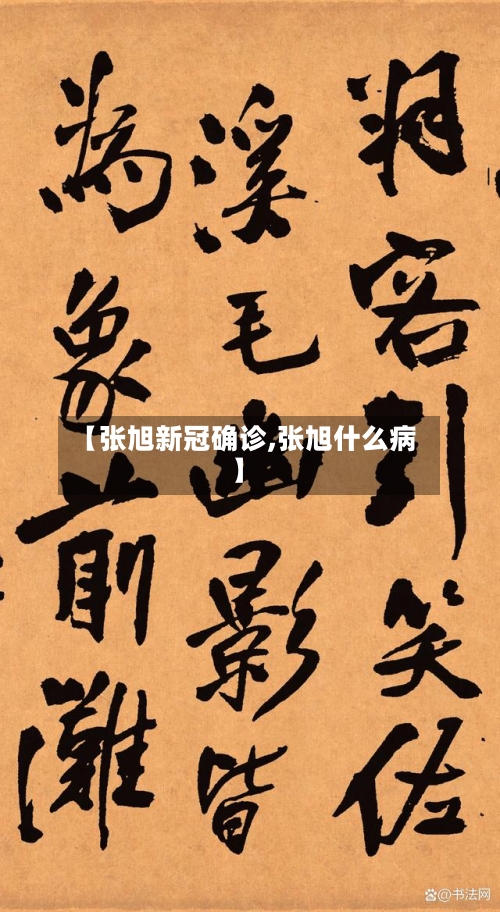 客引笑佐
溪毛幽影皆
為象前灘
【张旭新冠确诊,张旭什么病
】
@书法网